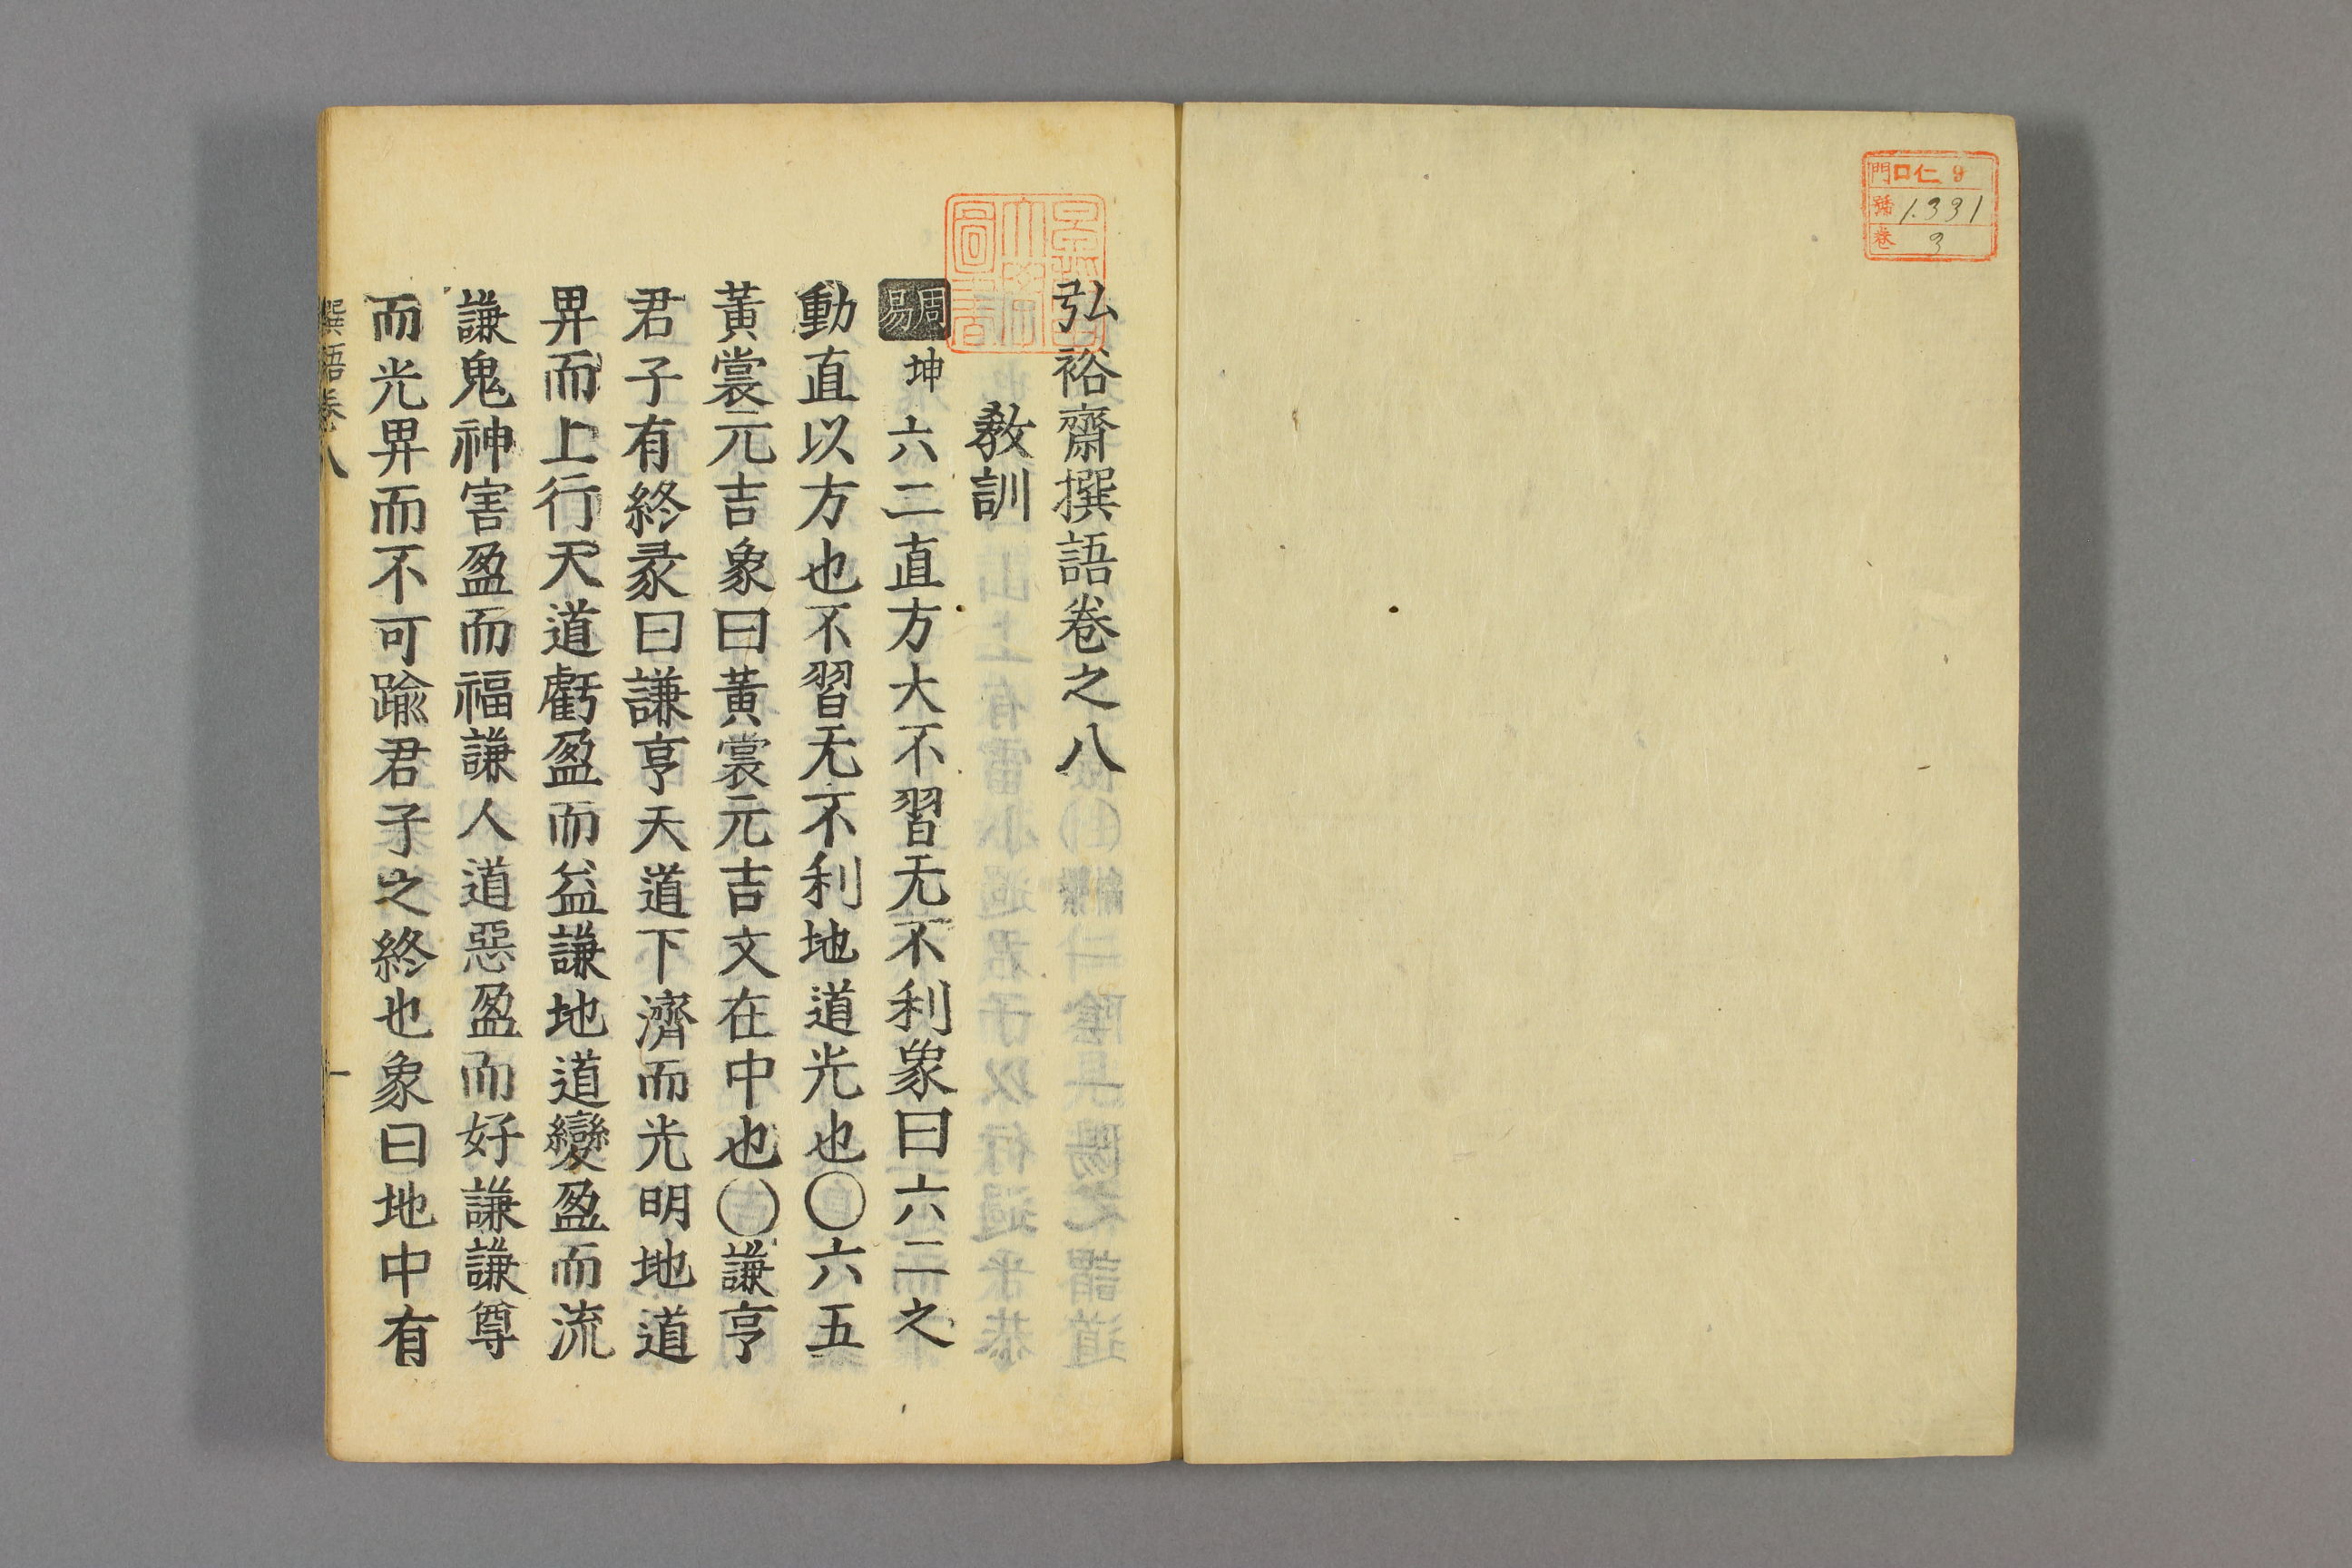 門 ロ仁9
號 1331
卷 3
弘裕齋撰語卷之八
教訓
周易 坤 六二直方大不習无不利象曰六二之
動直以方也不習无不利地道光也〇六五
黃裳元吉象曰黃裳元吉文在中也〇謙亨
君子有終彖曰謙亨天道下濟而光明地道
畀而上行天道虧盈而益謙地道變盈而流
謙鬼神害盈而福謙人道惡盈而好謙謙尊
而光畀而不可踰君子之終也象曰地中有
撰語卷八 一